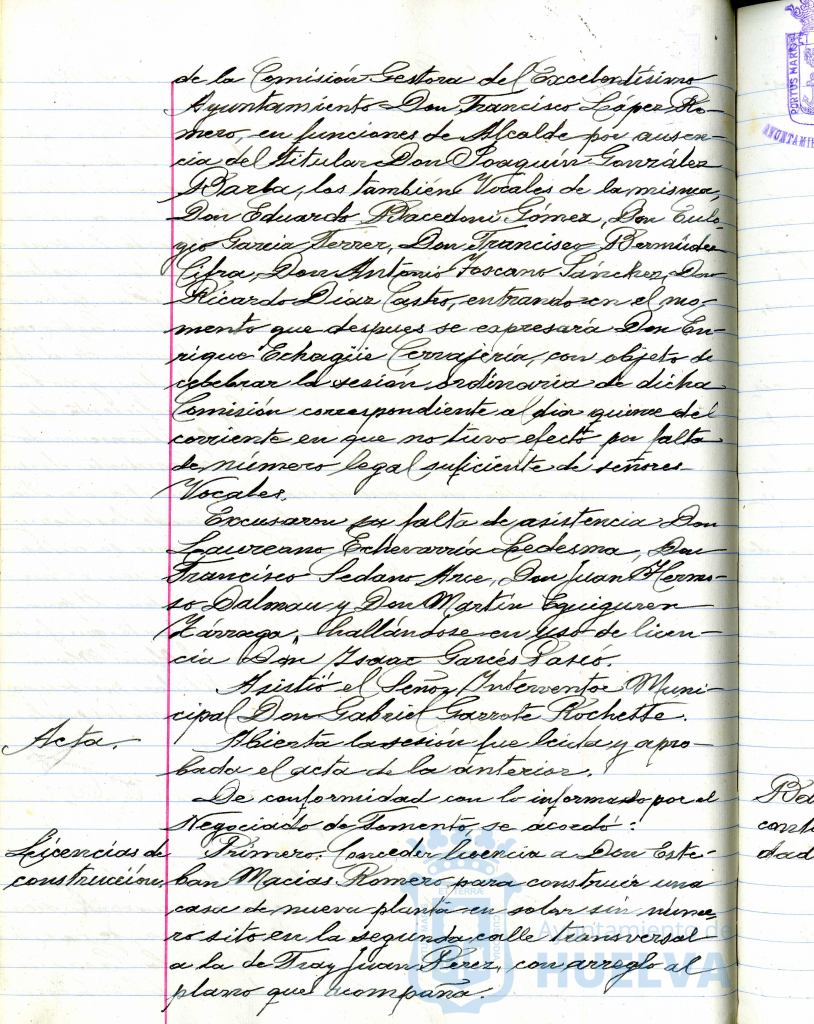 de la Comisión Gestora del Excelentísimo
Ayuntamiento Don Francisco López Ro-
mero, en funciones de Alcalde por ausen-
cia del titular Don Joaquín González
Barba, los también Vocales de la misma,
Don Eduardo Racedoni Gómez, Don Eulo-
gio García Ferrer, Don Francisco Bermúdez
Cifra, Don Antonio Toscano Sánchez, Don
Ricardo Díaz Castro, entrando en el mo-
mento que despues se expresará Don En-
rique Echagüe Cervajería, con objeto de
celebrar la sesión ordinaria de dicha
Comisión correspondiente al dia quince del
corriente en que no tuvo efecto por falta
de número legal suficiente de señores
Vocales.
Excusaron su falta de asistencia Don
Laureano Echevarría Ledesma, Don
Francisco Sedano Arce, Don Juan Hermo-
so Dalmau y Don Martín Eguiguren
Zárraga, hallándose en uso de licen-
cia Don Isaac Garcés Pasció.
Asistió el Señor Interventor Muni-
cipal Don Gabriel Garrote Rochette.
Acta.
Abierta la sesión fue leida y apro-
bada el acta de la anterior.
De conformidad con lo informado por el
Negociado de Fomento, se acordó:
Licencias de
construcción.
Primero. Conceder licencia a Don Este-
ban Macias Romer para construir una
casa de nueva planta en solar sin núme-
ro sito en la segunda calle transversal
a la de Fray Juan Pérez, con arreglo al
plano que acompaña.
Ba
cont
dad
PORTUS MARIS
AYUNTAMI
Ayuntamiento de
HUELVA